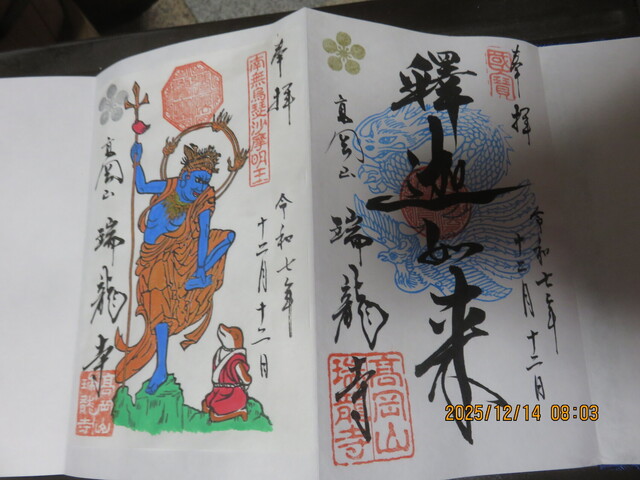 奉拝
國寶
釋迦如来
令和七年
十二月十二日
高岡山
瑞龍寺
高岡山
瑞龍寺
奉拝
南無烏蒭沙摩明王
令和七年
十二月十二日
高岡山
瑞龍寺
高岡山
瑞龍寺
2025/12/14 08:03